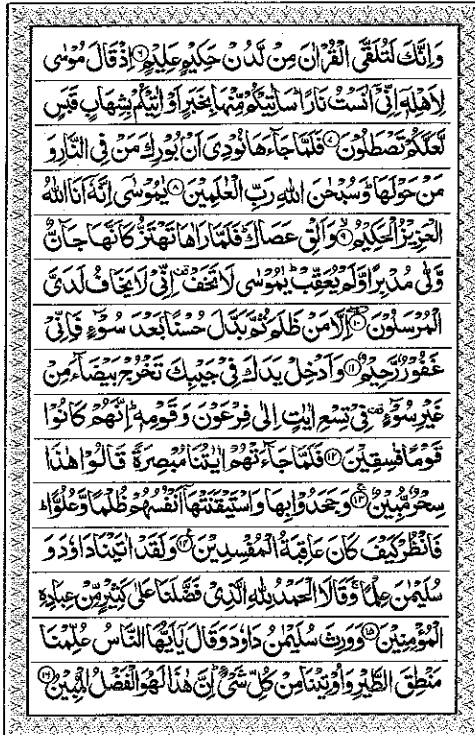 وَاِنَّكَ لَتُلَقَّى الْقُرْاٰنَ مِنْ لَّدُنْ حَكِيْمٍ عَلِيْمٍ ۶ اِذْ قَالَ مُوْسٰى
لِاَهْلِهٖٓ اِنِّىْٓ اٰنَسْتُ نَارًا ؕ سَاٰتِيْكُمْ مِّنْهَا بِخَبَرٍ اَوْ اٰتِيْكُمْ بِشِهَابٍ قَبَسٍ
لَّعَلَّكُمْ تَصْطَلُوْنَ ۷ فَلَمَّا جَآءَهَا نُوْدِىَ اَنْۢ بُوْرِكَ مَنْ فِى النَّارِ وَ
مَنْ حَوْلَهَا ؕ وَسُبْحٰنَ اللّٰهِ رَبِّ الْعٰلَمِيْنَ ۸ يٰمُوْسٰٓى اِنَّهٗٓ اَنَا اللّٰهُ
الْعَزِيْزُ الْحَكِيْمُ ۹ وَاَلْقِ عَصَاكَ ؕ فَلَمَّا رَاٰهَا تَهْتَزُّ كَاَنَّهَا جَآنٌّ
وَّلّٰى مُدْبِرًا وَّلَمْ يُعَقِّبْ ؕ يٰمُوْسٰى لَا تَخَفْ اِنِّىْ لَا يَخَافُ لَدَىَّ
الْمُرْسَلُوْنَ ۱۰ اِلَّا مَنْ ظَلَمَ ثُمَّ بَدَّلَ حُسْنًۢا بَعْدَ سُوْٓءٍ فَاِنِّىْ
غَفُوْرٌ رَّحِيْمٌ ۱۱ وَاَدْخِلْ يَدَكَ فِىْ جَيْبِكَ تَخْرُجْ بَيْضَآءَ مِنْ
غَيْرِ سُوْٓءٍ فِىْ تِسْعِ اٰيٰتٍ اِلٰى فِرْعَوْنَ وَقَوْمِهٖ ؕ اِنَّهُمْ كَانُوْا
قَوْمًا فٰسِقِيْنَ ۱۲ فَلَمَّا جَآءَتْهُمْ اٰيٰتُنَا مُبْصِرَةً قَالُوْا هٰذَا
سِحْرٌ مُّبِيْنٌ ۱۳ وَجَحَدُوْا بِهَا وَاسْتَيْقَنَتْهَآ اَنْفُسُهُمْ ظُلْمًا وَّعُلُوًّا ؕ
فَانْظُرْ كَيْفَ كَانَ عَاقِبَةُ الْمُفْسِدِيْنَ ۱۴ وَلَقَدْ اٰتَيْنَا دَاوٗدَ وَ
سُلَيْمٰنَ عِلْمًا ۚ وَقَالَا الْحَمْدُ لِلّٰهِ الَّذِىْ فَضَّلَنَا عَلٰى كَثِيْرٍ مِّنْ عِبَادِهِ
الْمُؤْمِنِيْنَ ۱۵ وَوَرِثَ سُلَيْمٰنُ دَاوٗدَ وَقَالَ يٰٓاَيُّهَا النَّاسُ عُلِّمْنَا
مَنْطِقَ الطَّيْرِ وَاُوْتِيْنَا مِنْ كُلِّ شَىْءٍ ؕ اِنَّ هٰذَا لَهُوَ الْفَضْلُ الْمُبِيْنُ ۱۶